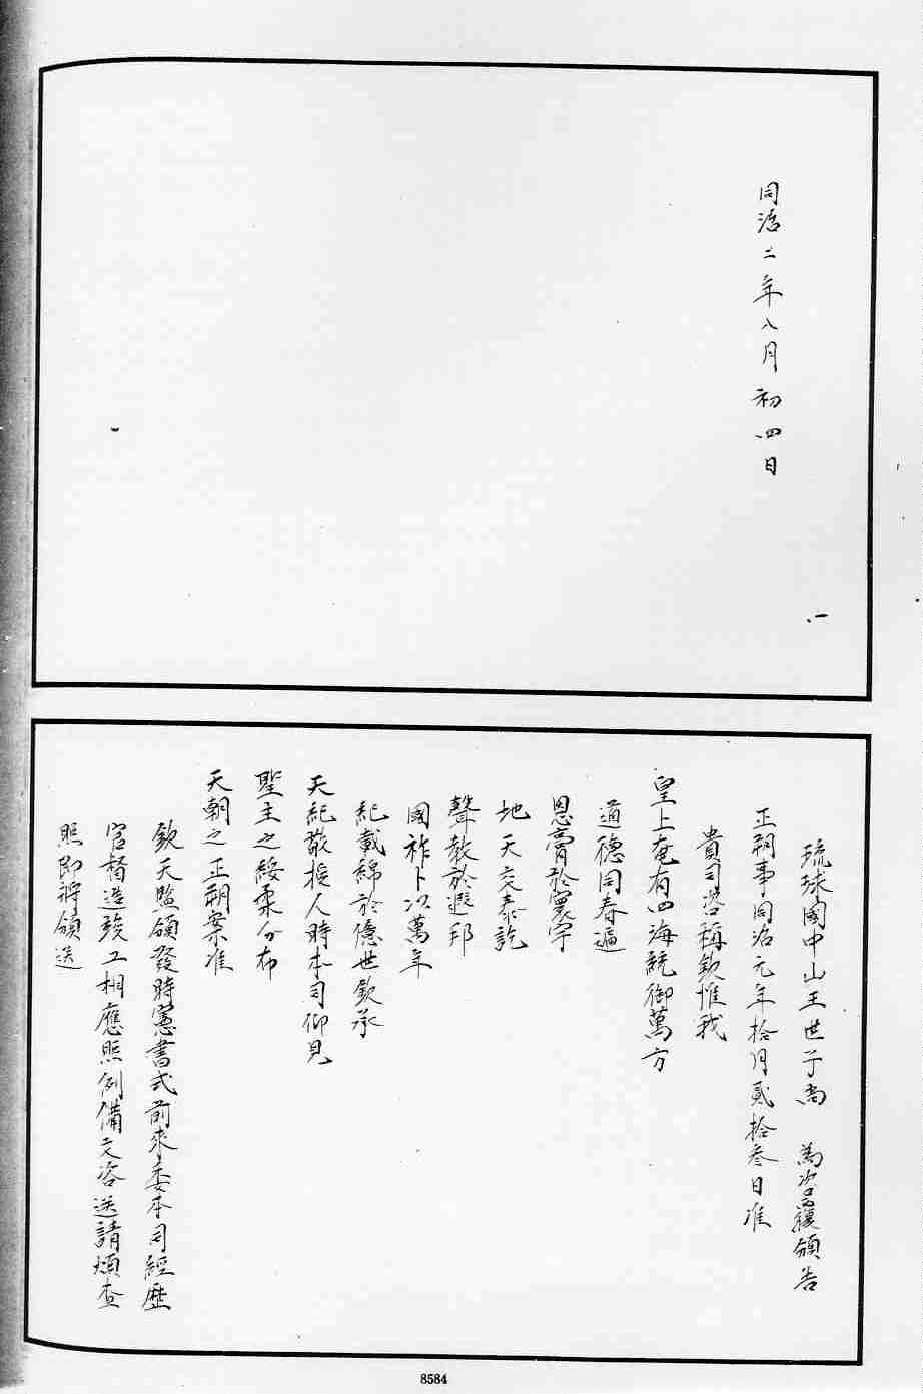 同治二年八月初四日
琉球國中山王世子尚 為咨覆頒告
正朔事同治元年拾月貳拾叁日准
貴司咨稱欽惟我
皇上奄有四海統御萬方
道德同春遍
恩膏於寰宇
地天交泰訖
聲教於遐邦
國祚卜以萬年
紀載綿於億世欽承
天紀敬授人時本司仰見
聖主之綏柔分布
天朝之正朔案准
欽天監頒發時憲書式前來委本司經歷
官督造竣工相應照例備文咨送請煩查
照即將頒送
8584